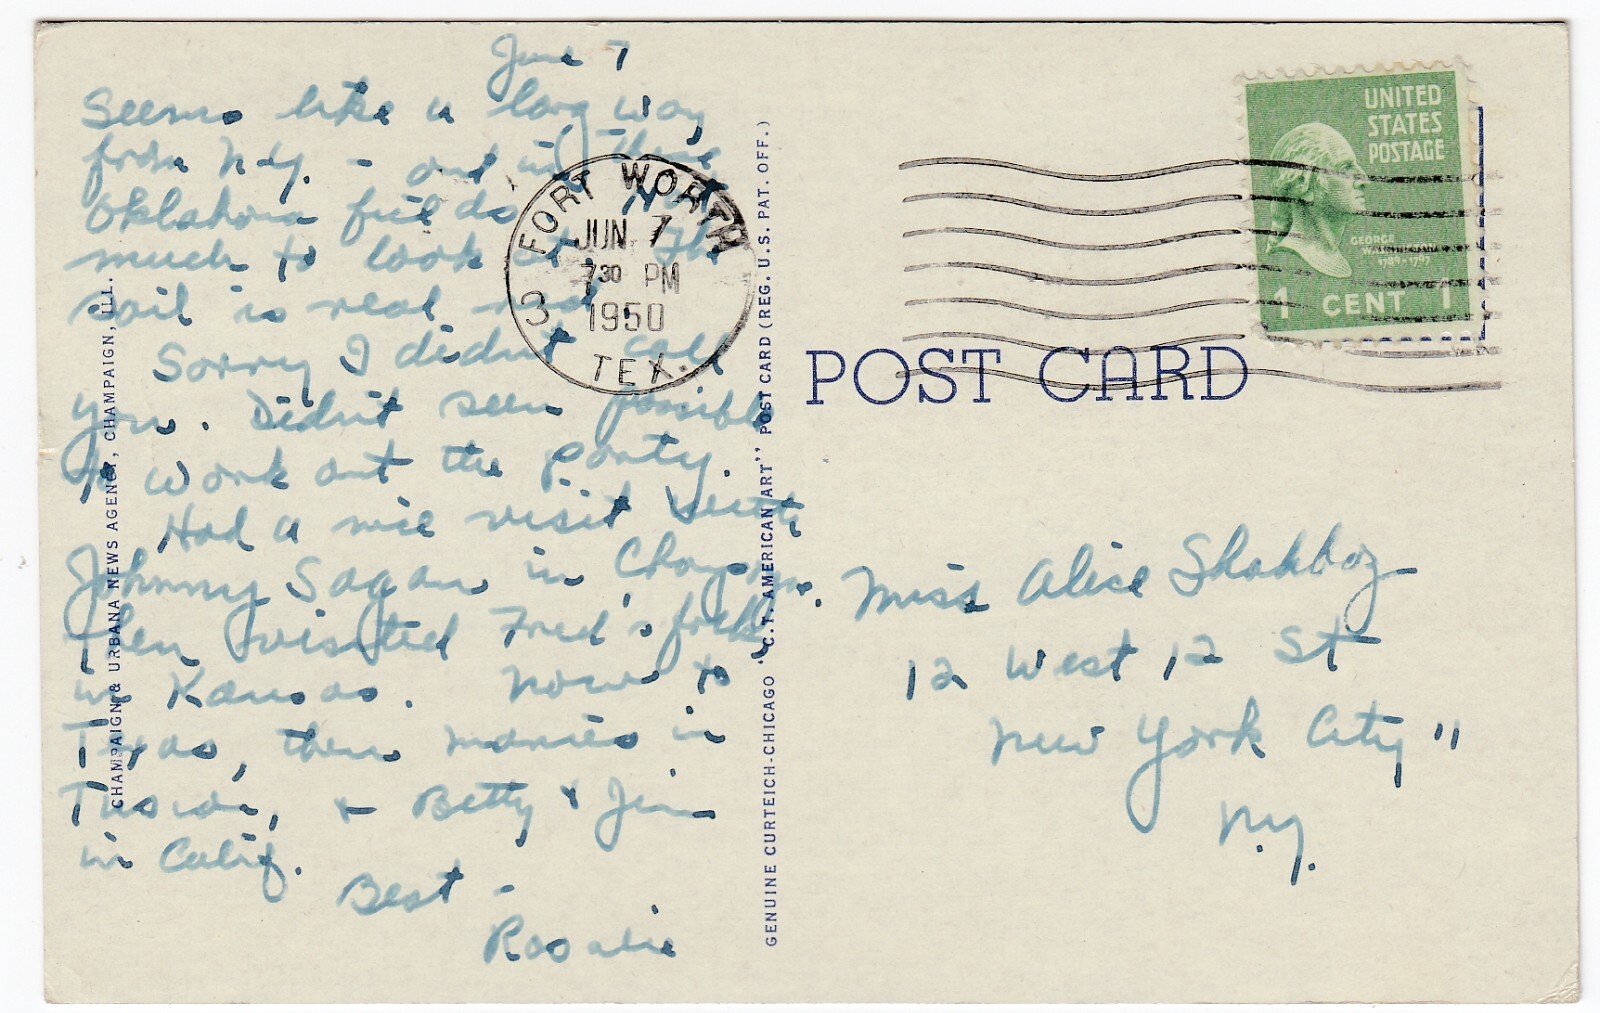 June 7
Seems like a long way
from N.Y. - and in these
Oklahoma fields. Not
much to look at. The
soil is real red.
Sorry I didn't call
you. Didn't seem possible
to work out the party.
Had a nice visit with
Johnny Sagan in
Then visited Fred's folks
in Kansas. Now to
Texas, then in
Tuscon, + Betty + Jim
in Calif.
Best -
Rosalie
CHAMPAIGN & URBANA NEWS AGENCY, CHAMPAIGN, ILL.
GENUINE CURTEICH-CHICAGO "C.T. AMERICAN ART" POST CARD (REG. U.S. PAT. OFF.)
FORT WORTH
JUN 7
7 30 PM
1950
3
TEX.
UNITED
STATES
POSTAGE
GEORGE
WASHINGTON
1789-1797
1 CENT 1
POST CARD
Miss Alice
12 West 12 St
New York City 11
N.Y.